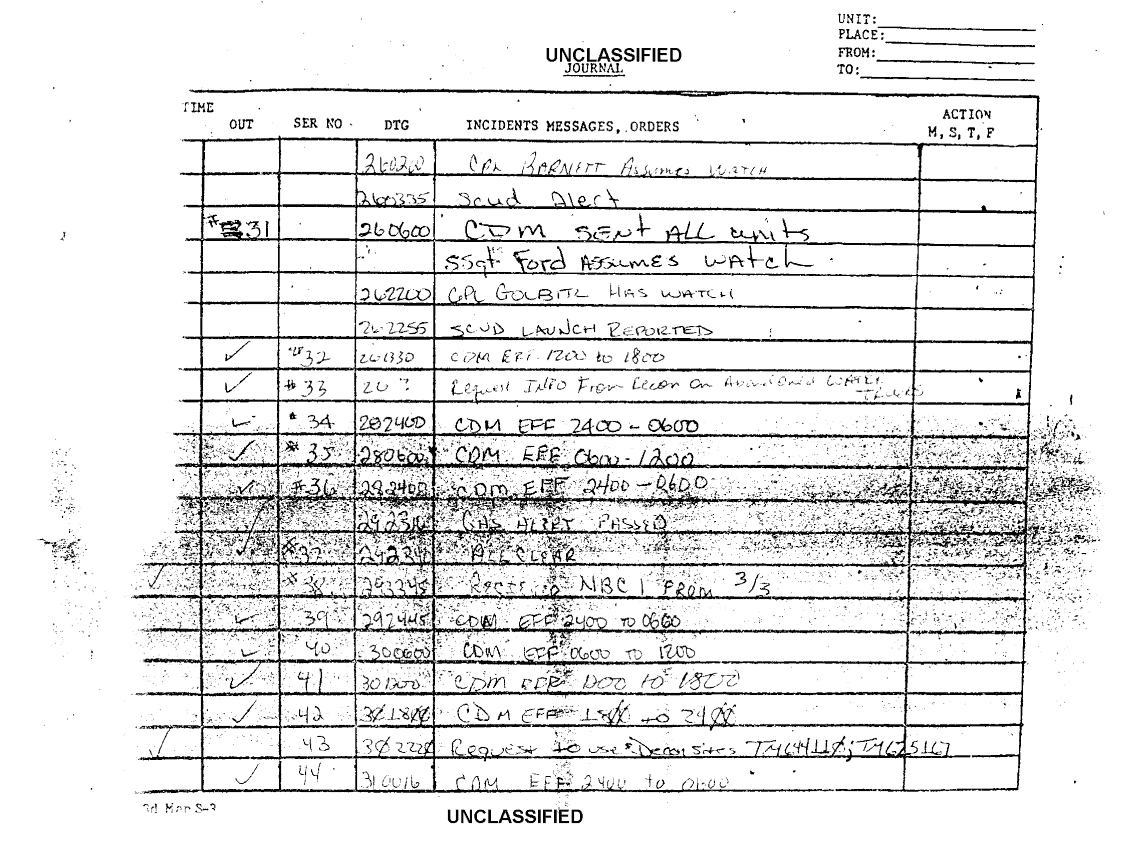 UNIT:
PLACE:
UNCLASSIFIED
FROM:
JOURNAL
TO:
TIME
OUT SER NO DTG INCIDENTS MESSAGES, ORDERS ACTION
M, S, T, F
CPL BARNETT Assumes WATCH
260335 Scud Alert
# 31 260600 CDM SENt ALL units
SSgt Ford ASSUMES WATCh
262200 CPL GOLBITZ HAS WATCH
262255 SCUD LAUNCH REPORTED
✓ #32 CDM EFF 1200 to 1800
✓ #33 Request INFO From Recon On Abandoned WATER
✓ #34 282400 CDM EFF 2400 - 0600
✓ #35 280600 CDM EFF 0600-1200
✓ #36 292400 CDM EFF 2400 - 0600
✓ GAS ALERT PASSED
✓ #37 ALL CLEAR
✓ #38 NBC 1 FROM 3/3
✓ 39 292445 CDM EFF 2400 TO 0600
✓ 40 300600 CDM EFF 0600 TO 1200
✓ 41 301200 CDM EFF 1200 to 1800
✓ 42 301800 CDM EFF 1800 to 2400
✓ 43 Request to use Decon sites
✓ 44 310016 CDM EFF 2400 to 0600
3d Mar S-3
UNCLASSIFIED